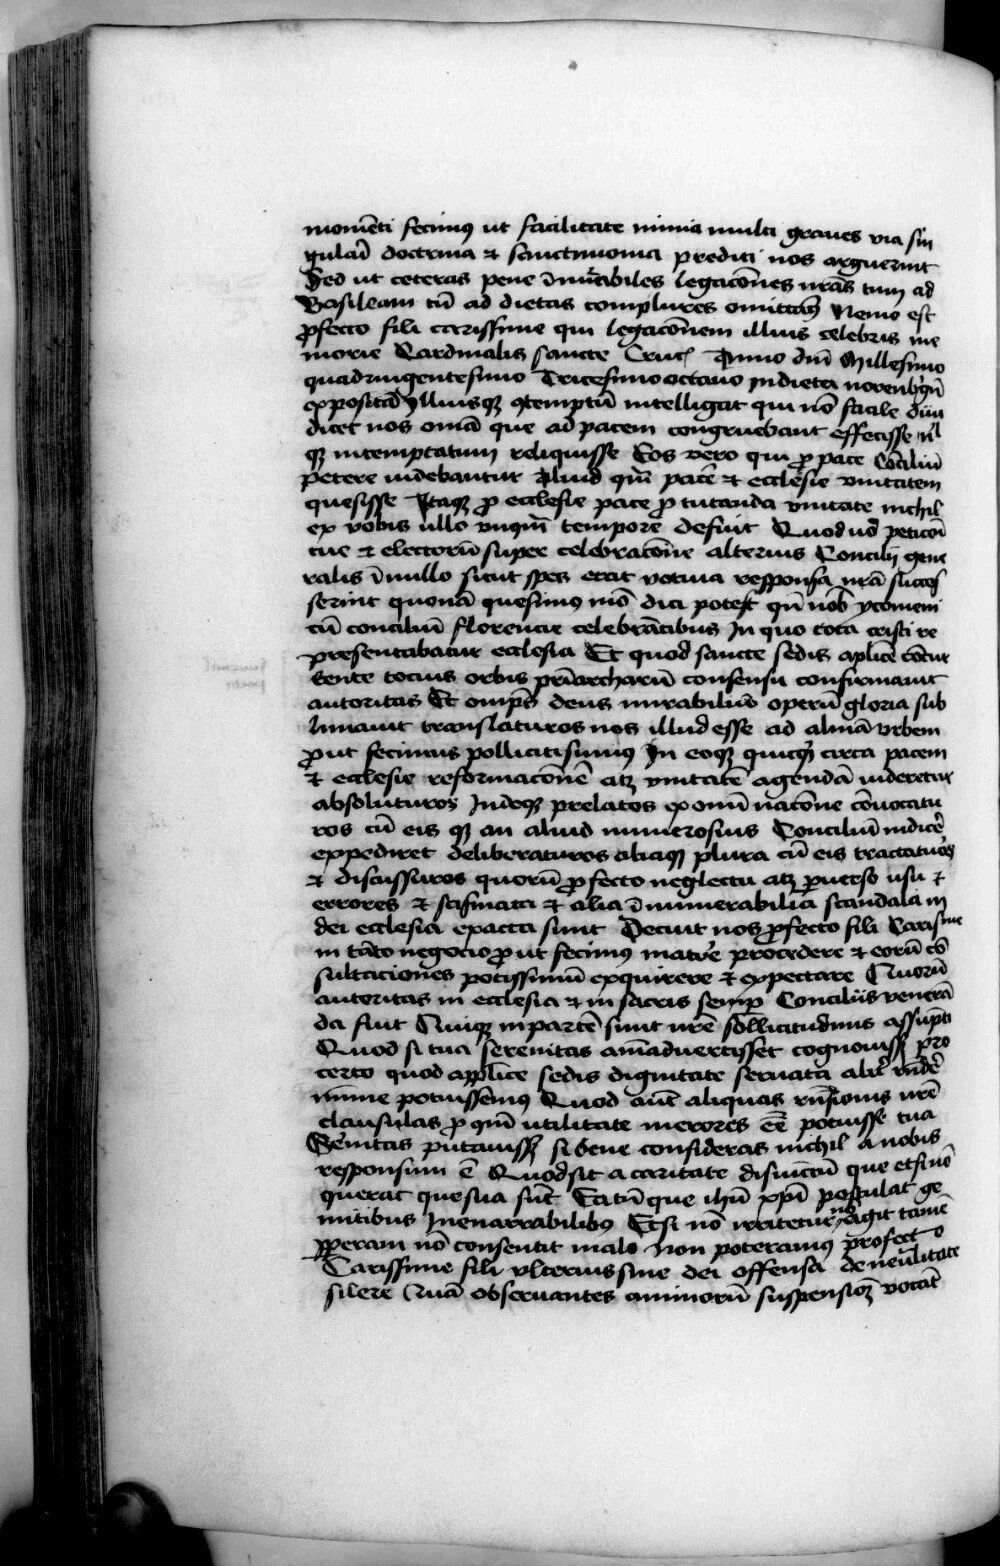 momēti fecimus ut facilitate nimia multi graues via sin
gulari doctrina & sanctimonia prediti nos arguerint
Sed ut ceteras pene īnūabiles legacōnes nrās tum ad
Basileam tū ad dietas complures omittam9 Nemo est
profecto fili carissime qui legacōnem illius celebris me
morie Cardinalis sancte Cruc Anno dnī Millesimo
quadringentesimo Tricesimooctauo In dieta
expositā Illiusq3 9temptū intelligat qui nō facile diiu
dicet nos omīa que ad pacem congruebant effecisse nl
q3 intemptatum reliquisse Eos vero qui pro pace Conciliū
petere videbantur Aliud qm̄ pacē & ecclesie vnitatem
quesisse Itaq3 pro ecclesie pace pro tutanda vnitate nichil
ex vobis ullo vnqm̄ tempore defuit Quod vo peticōi
tue & electorū super celebracōne alterius Concilij gene
ralis ī nullo sicut spes erat votiua responsa nrā succes
serint quonā quesimus mō dici potest qn̄ nob ycomeni
cū conciliū florencie celebrātibus In quo tota cristi re
presentabatur ecclesia Et quod sancte sedis aplice cōcur
rente tocius orbis priarcharū consensu confirmauit
autoritas Et omps deus mirabiliū operū gloria sub
limauit translaturos nos illud esse ad almā vrbem
prout fecimus polliciti simus In eoq3 quicq3 circa pacem
& ecclesie reformacōnē atq3 vnitatē agendā videretur
absoluturos Indeq3 prelatos ex omī nacōne cōuocatu
ros cū eis q3 an aliud numerosius Conciliū indicē
expediret deliberaturos aliaq3 plura cū eis tractaturos
& discussuros quorū profecto neglectu atq3 puerso usu &
errores & scismata & alia īnumerabilia scandala in
dei ecclesia exacta sunt Decuit nos profecto fili Carissime
in tāto negocio prout fecimus mature procedere & eorū cō
sultaciones potissimū exquirere & expectare Quorū
autoritas in ecclesia & in sacris semp Conciliis venerā
da fuit Quiq3 in partē sunt nrē sollicitudinis assūpti
Quod si tua serenitas aīaduertisset cognouiss3 pro
certo quod applice sedis dignitate seruata alit rndē
mīme potuissemus Quod aut aliquas rnsionis nrē
clausulas pro qm̄ utilitate merores eē potuisse tua
Serītas putauiss3 si bene consideras nichil a nobis
responsum ē Quod sit a caritate disiūctū que etsi nō
querat que sua sūt Tatū que ihū xpī postulat ge
mitibus Inenarrabilibus Etsi nō irritetur nō agit tamē
pperam nō consentit malo Non poteramus profecto
Carissime fili vlterius sine dei offensa de neutralitate
silere Quā obseruantes animorū suspensioz vocāt